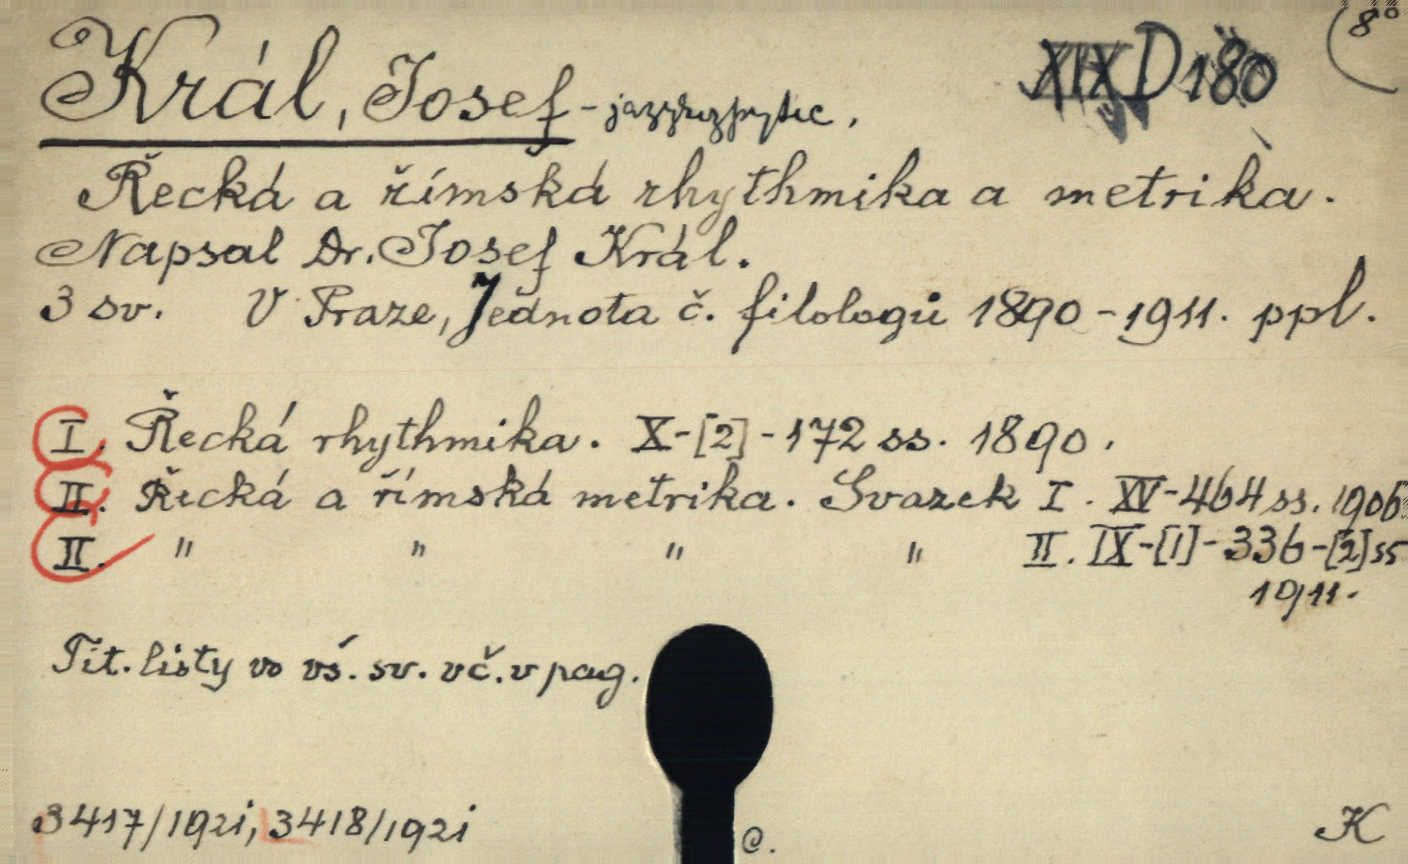 8°
Král, Josef - jazykozpytec.
XIX D 180
Řecká a římská rhythmika a metrika.
Napsal Dr. Josef Král.
3 sv. V Praze, Jednota č. filologů 1890-1911. ppl.
I. Řecká rhythmika. X-[2]-172 ss. 1890.
II. Řecká a římská metrika. Svazek I. XV-464 ss. 1906
II. " " " " II. IX-[1]-336-[2] ss
1911.
Tit. listy vo vś. sv. vč. v pag.
3417/1921, 3418/1921
C.
K